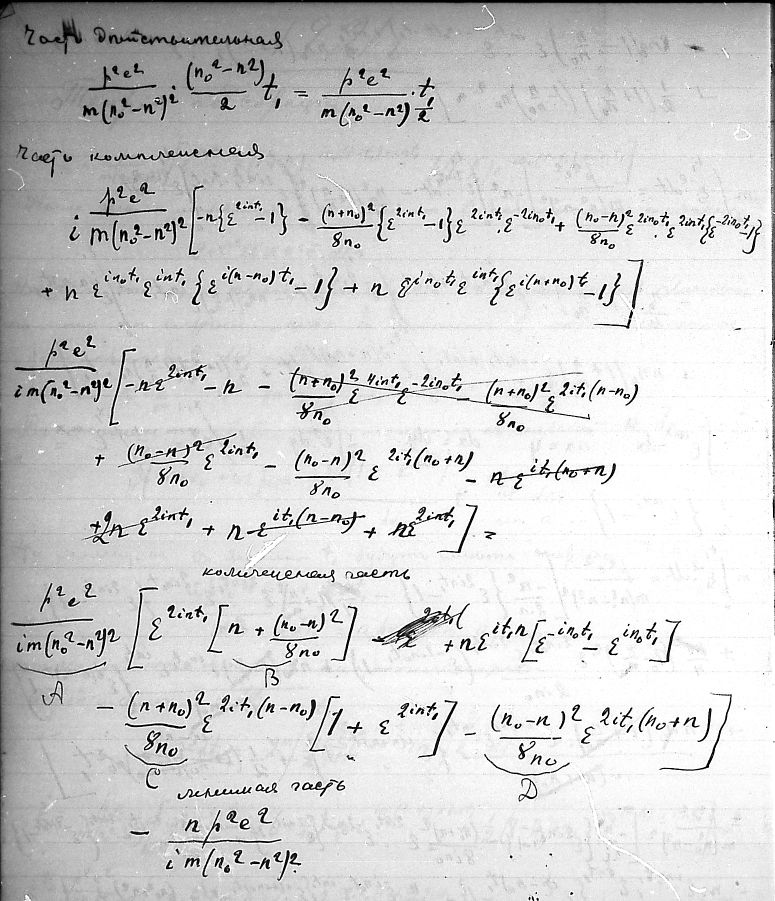 Часть Действительная
p²e²/m(n₀²−n²)² · (n₀²−n²)/2 t₁ = p²e²/m(n₀²−n²) · t₁/2
Часть комплексная
i p²e²/m(n₀²−n²)² [−n{ε^{2int₁}−1} − (n+n₀)²/8n₀ {ε^{2int₁}−1} ε^{2int₁}·ε^{−2in₀t₁} + (n₀−n)²/8n₀ ε^{2in₀t₁}·ε^{2int₁}{ε^{−2in₀t₁}−1}
+ n ε^{in₀t₁} ε^{int₁} {ε^{i(n−n₀)t₁}−1} + n ε^{in₀t₁} ε^{int₁} {ε^{i(n+n₀)t}−1}]
p²e²/im(n₀²−n²)² [−nε^{2int₁} − n − (n+n₀)²/8n₀ ε^{4int₁} ε^{−2in₀t₁} − (n+n₀)²/8n₀ ε^{2it₁(n−n₀)}
+ (n₀−n)²/8n₀ ε^{2int₁} − (n₀−n)²/8n₀ ε^{2it₁(n₀+n)} − n ε^{it₁(n₀+n)}
+2n ε^{2int₁} + n ε^{it₁(n−n₀)} + nε^{2int₁}] =
комплексная часть
p²e²/im(n₀²−n²)² [ε^{2int₁} [n + (n₀−n)²/8n₀] + nε^{it₁n} [ε^{−in₀t₁} − ε^{in₀t₁}]
A B
− (n+n₀)²/8n₀ ε^{2it₁(n−n₀)} [1 + ε^{2int₁}] − (n₀−n)²/8n₀ ε^{2it₁(n₀+n)}]
C D
мнимая часть
− n p²e²/i m(n₀²−n²)²